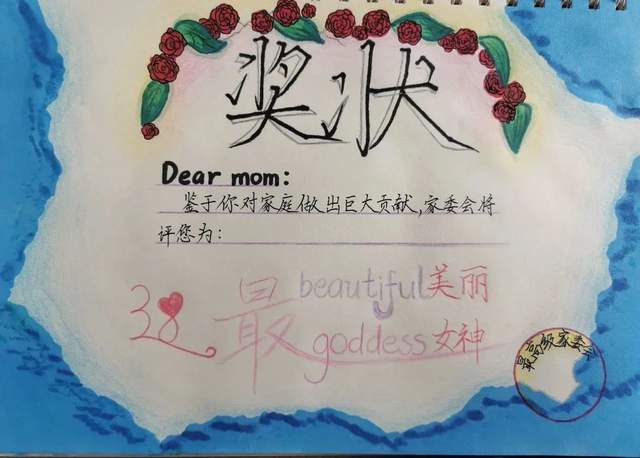 奖状
Dear mom:
鉴于你对家庭做出巨大贡献,家委会将
评您为:
38 最 beautiful美丽
goddess女神
最高级家委会